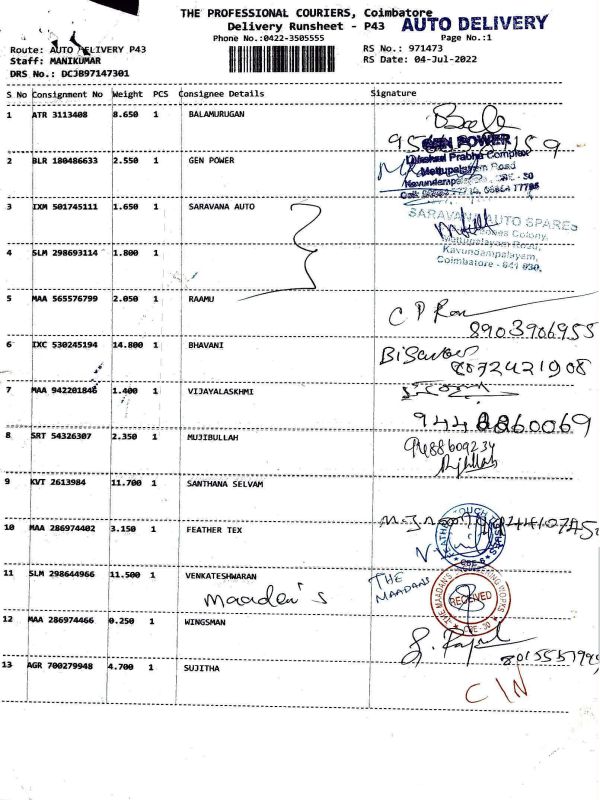 THE PROFESSIONAL COURIERS, Coimbatore
AUTO DELIVERY
Delivery Runsheet - P43
Phone No.:0422-3505555
Page No.:1
Route: AUTO DELIVERY P43
RS No.: 971473
Staff: MANIKUMAR
RS Date: 04-Jul-2022
DRS No.: DCJB97147301
S No Consignment No Weight PCS Consignee Details Signature
1 ATR 3113408 8.650 1 BALAMURUGAN
GEN POWER
Lakshmi Prabha Complex
Mettupalayam Road
2 BLR 180486633 2.550 1 GEN POWER
Kavundampalayam, CBE - 30
3 IXM 501745111 1.650 1 SARAVANA AUTO
SARAVANA AUTO SPARES
Colony,
Mettupalayam Road,
4 SLM 298693114 1.800 1
Kavundampalayam,
Coimbatore - 641 030.
5 MAA 565576799 2.050 1 RAAMU
8903906955
6 IXC 530245194 14.800 1 BHAVANI
8072421908
7 MAA 942201846 1.400 1 VIJAYALASKHMI
8 SRT 54326307 2.350 1 MUJIBULLAH
9488609234
9 KVT 2613984 11.700 1 SANTHANA SELVAM
10 MAA 286974402 3.150 1 FEATHER TEX
11 SLM 298644966 11.500 1 VENKATESHWARAN
THE MAADANS
Maaden's
RECEIVED
12 MAA 286974466 0.250 1 WINGSMAN
13 AGR 700279948 4.700 1 SUJITHA
C/N